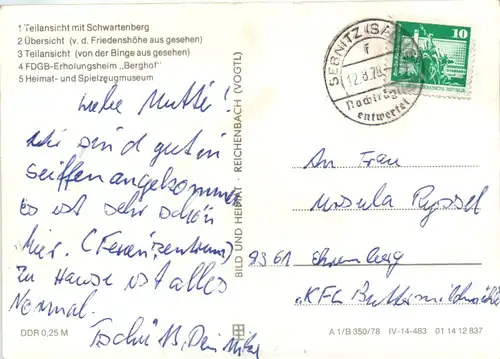 1 Teilansicht mit Schwartenberg
2 Übersicht (v. d. Friedenshöhe aus gesehen)
3 Teilansicht (von der Binge aus gesehen)
4 FDGB-Erholungsheim „Berghof"
5 Heimat- und Spielzeugmuseum
Liebe Mutter!
Wir sind gut in
Seiffen angekommen
Es ist sehr schön
hier. (Ferienzentrum)
Zu Hause ist alles
Normal.
Tschüß, Dein
DDR 0,25 M
BILD UND HEIMAT · REICHENBACH (VOGTL)
SEBNITZ
12.8.78
Nachträgl.
entwertet
10
An Frau
Ursula
9361
"KFL
A 1/B 350/78 IV-14-483 01 14 12 837